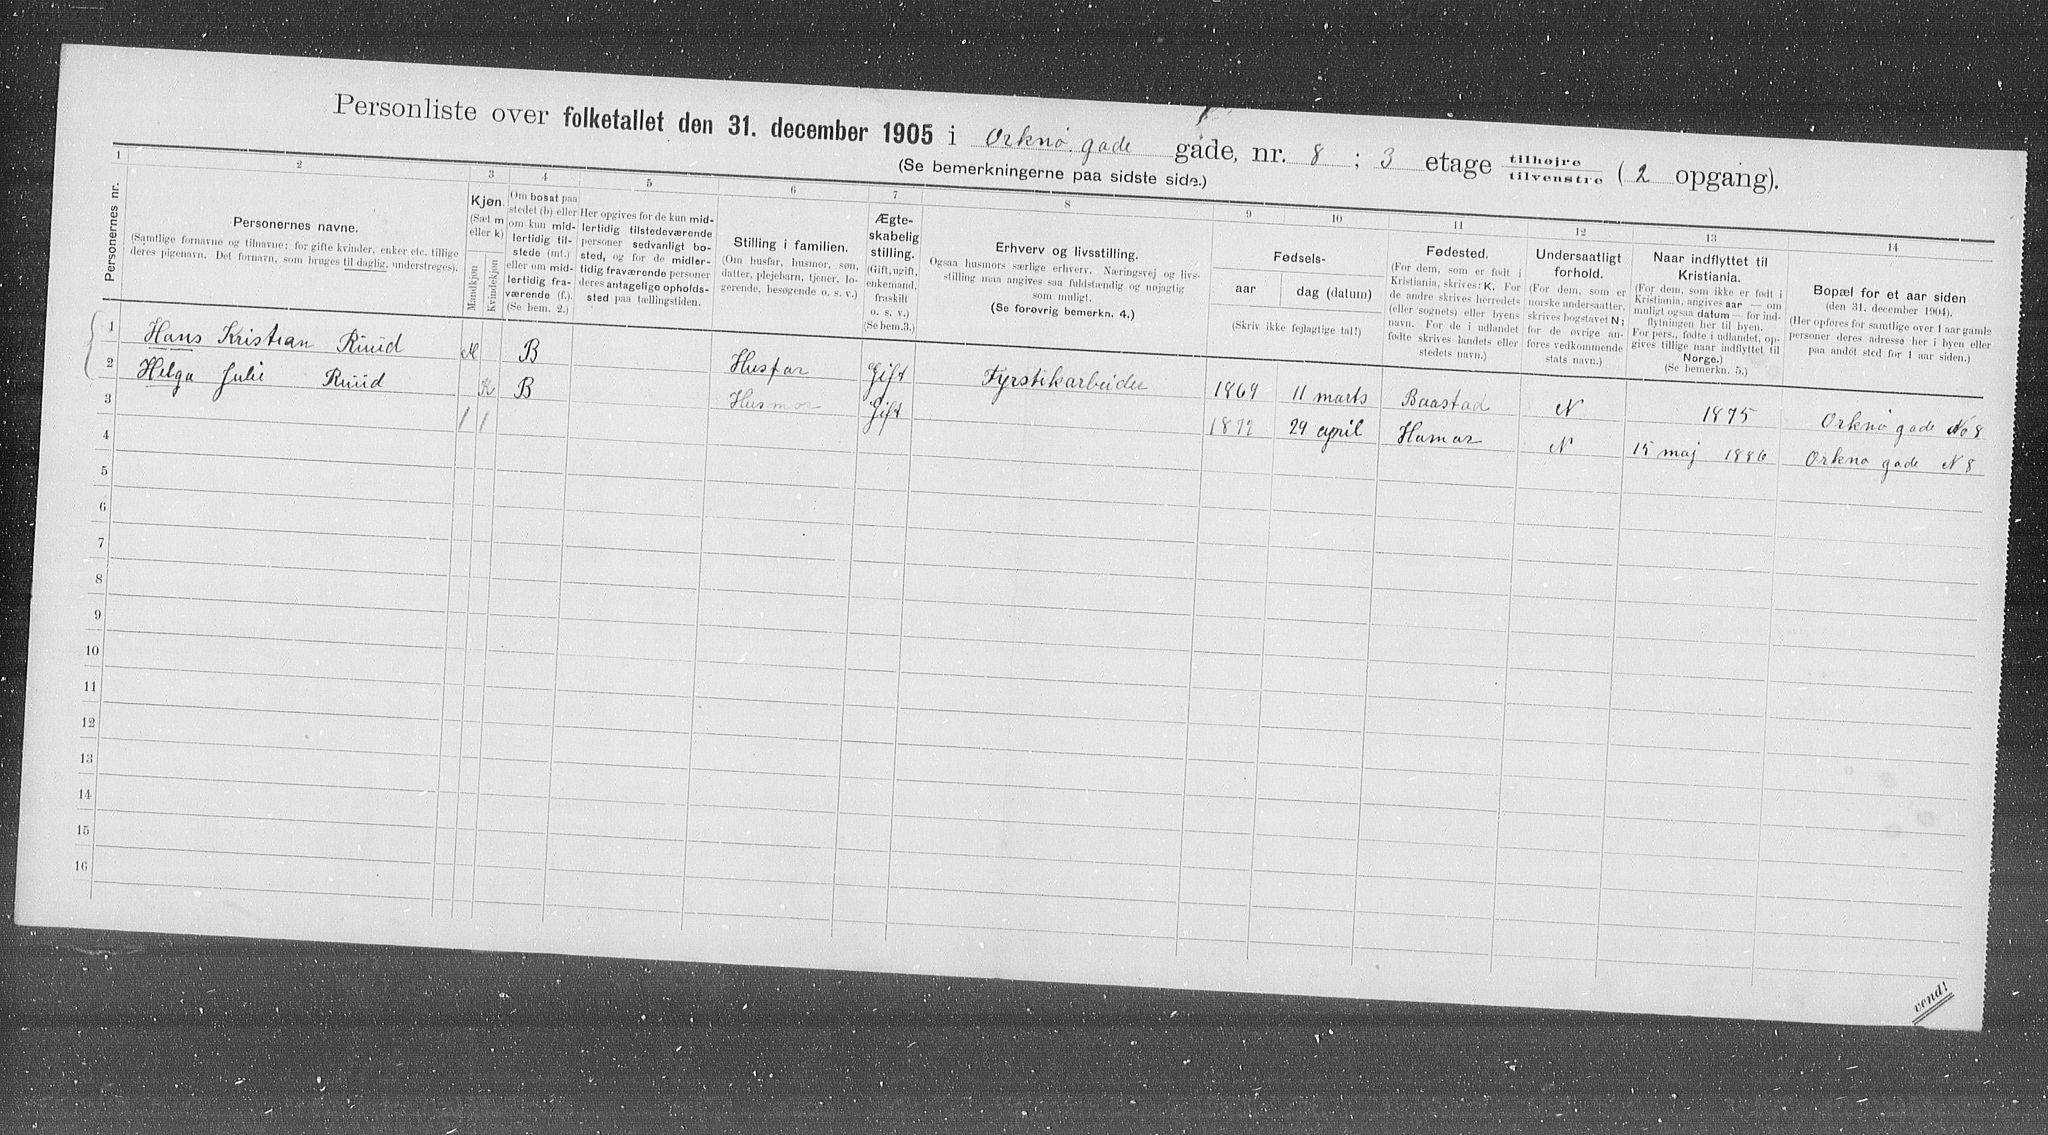 Personliste over folketallet den 31. december 1905 i Orknø gade gade, nr. 8 ; 3 etage tilhøjre tilvenstre (2 opgang).
(Se bemerkningerne paa sidste side.)
1 2 3 4 5 6 7 8 9 10 11 12 13 14
Personernes nr.
Personernes navne.
(Samtlige fornavne og tilnavne; for gifte kvinder, enker etc. tillige
deres pigenavn. Det fornavn, som bruges til daglig, understreges).
Kjøn.
(Sæt m
eller k)
Mandkjøn
Kvindekjøn
Om bosat paa
stedet (b) eller
om kun mid-
lertidig til-
stede (mt.)
eller om mid-
lertidig fra-
værende (f.).
(Se bem. 2.)
Her opgives for de kun mid-
lertidig tilstedeværende
personer sedvanligt bo-
sted, og for de midler-
tidig fraværende personer
deres antagelige opholds-
sted paa tællingstiden.
Stilling i familien.
(Om husfar, husmor, søn,
datter, plejebarn, tjener, lo-
gerende, besøgende o. s. v.)
Ægte-
skabelig
stilling.
(Gift, ugift,
enkemand,
fraskilt
o. s. v.)
(Se bem.3.)
Erhverv og livsstilling.
Ogsaa husmors særlige erhverv. Næringsvej og livs-
stilling maa angives saa fuldstændig og nøjagtig
som muligt.
(Se forøvrig bemerkn. 4.)
Fødsels-
aar
dag (datum)
(Skriv ikke fejlagtige tal!)
Fødested.
(For dem, som er født i
Kristiania, skrives: K. For
de andre skrives herredets
(eller sognets) eller byens
navn. For de i udlandet
fødte skrives landets eller
stedets navn.)
Undersaatligt
forhold.
(For dem, som er
norske undersaatter,
skrives bogstavet N;
for de øvrige an-
føres vedkommende
stats navn.)
Naar indflyttet til
Kristiania.
(For dem, som ikke er født i
Kristiania, angives aar — om
muligt ogsaa datum — for ind-
flytningen her til byen.
For pers., fødte i udlandet, op-
gives tillige naar indflyttet til
Norge.)
(Se bemerkn. 5.)
Bopæl for et aar siden
(den 31. december 1904).
(Her opføres for samtlige over 1 aar gamle
personer deres adresse her i byen eller
paa andét sted for 1 aar siden.)
1 Hans Kristian Ruud M B Husfar Gift Fyrstikarbeider 1869 11 marts Baastad N 1875 Orknø gade No 8
2 Helga Julie Ruud K B Husmor Gift 1872 29 april Hamar N 15 maj 1886 Orknø gade N 8
3 1 1
4
5
6
7
8
9
10
11
12
13
14
15
16
vend!